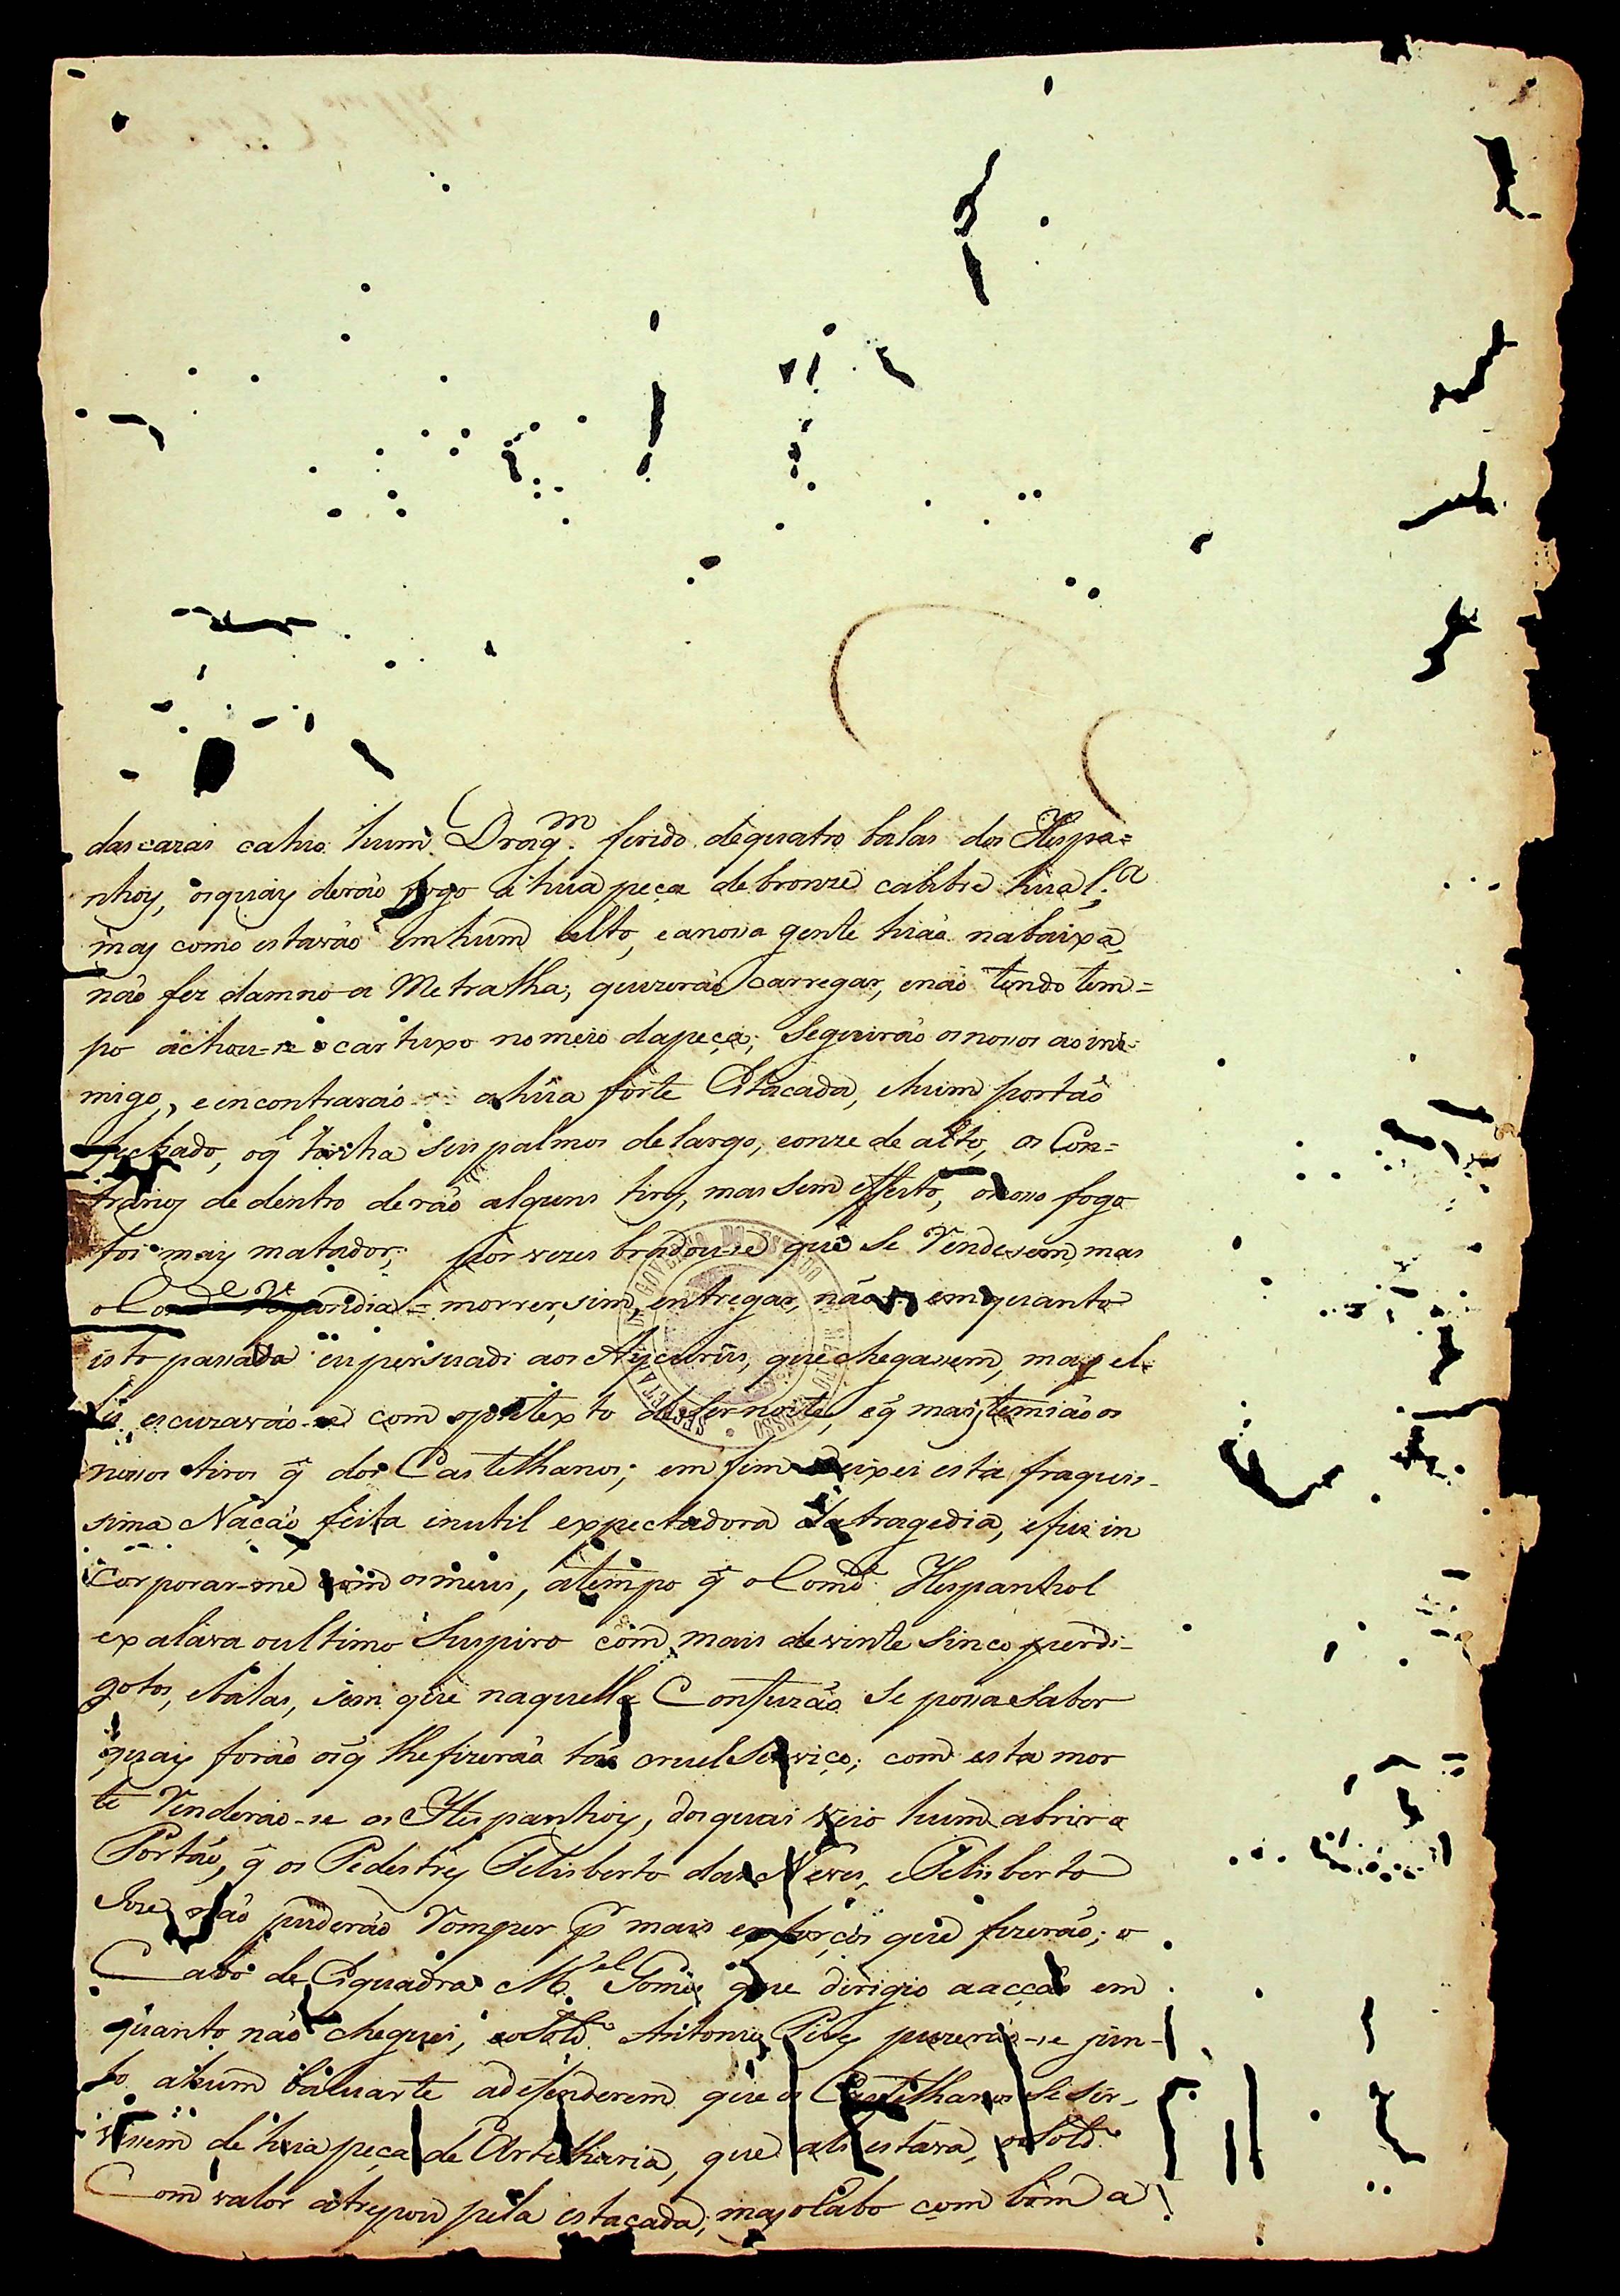 das cazas cahio hum Drag.m ferido de quatro balas dos Hespa=
nhoy, os quay derão fogo a hua peça de bronze calibre hua l.a
may como estavão em hum alto, e a nossa gente hiáa na baixa,
não fez damno a Metralha; quizerão carregar, e não tendo tem=
po achou-se o cartuxo no meio da peça; Seguirão os nossos ao ini-
migo, e encontrarão a hũa forte Estacada, e hum portão
fechado, o ql tinha seis palmos de largo, e onze de alto, os Con=
trarios de dentro derão alguns tiros, mas sem effeito, o nosso fogo
foi may matador; por vezes bradou-se que se Rendessem, mas
o Com.de Respondia = morrer sim, entregar, não = em quanto
isto passava eu persuadi aos Aycurús, que chegassem, may el-
les escuzavão-se com o pretexto de ser noite, e q̃ mais temião os
nossos tiros q̃ dos Castelhanos; em fim deixei esta fraquis-
sima Nação feita inutil expectadora da tragedia, e fui in
corporar-me com os meus, a tempo q̃ o Com.de Hespanhol
exalava o ultimo Suspiro com mais de vinte sinco perdi-
gotos, e balas, sem que naquella Confuzão se possa Saber
quay forão os q̃ lhe fizerão tão cruel Serviço; com esta mor
te Renderão-se os Hespanhoy, dos quais veio hum abrir o
Portão, q̃ os Pedestrey Felisberto das Neves, e Felisberto
Joze não puderão Romper p.r mais esforços que fizerão; o
Cabo de Esquadra M.el Gomes que dirigio a acção em
quanto não cheguei, e o Sold.o Antonio Pires puzerão-se jun-
to a hum baluarte a defenderem que os Castelhanos se ser-
vissem de hua peça de Artelharia, que ali estava, o Sold.o
Com valor atrepou pela estacada, may o Cabo com bom a